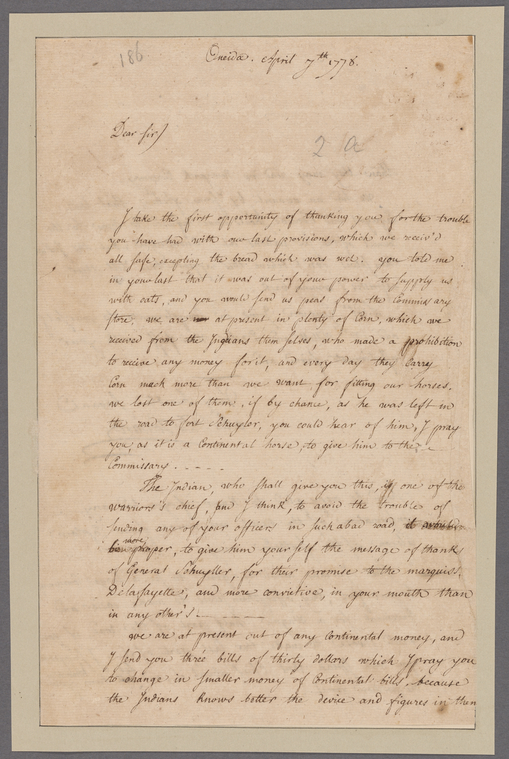 186
Oneida. April 7th 1778.
Dear Sir
2
I take the first opportunity of thanking you for the trouble
you have had with our last provisions, which we receiv'd
all safe, excepting the bread which was wet. you told me
in your last that it was out of your power to supply us
with oats, and you would send us peas from the Commissary
store; we are at present in plenty of Corn, which we
received from the Indians themselves, who made a prohibition
to recive any money for it, and every day they Carry
Corn much more than we want for fitting our horses.
we lost one of them; if by chance, as he was left in
the road to fort Schuyler, you could hear of him, I pray
you, as it is a Continental horse, to give him to the
Commissary. - - - - -
The Indian, who shall give you this, is one of the
warriors's chief, and I think, to avoid the trouble of
sending any of your officers in such abad road, it would
be more proper, to give him your self the message of thanks
of General Schuyller, for their promise to the marquis
Delafayette, and more convictive, in your mouth than
in any other's.
we are at present out of any Continental money, and
I send you three bills of thirty dollars which I pray you
to change in smaller money of Continental bills, because
the Indians knows better the devise and figures in them